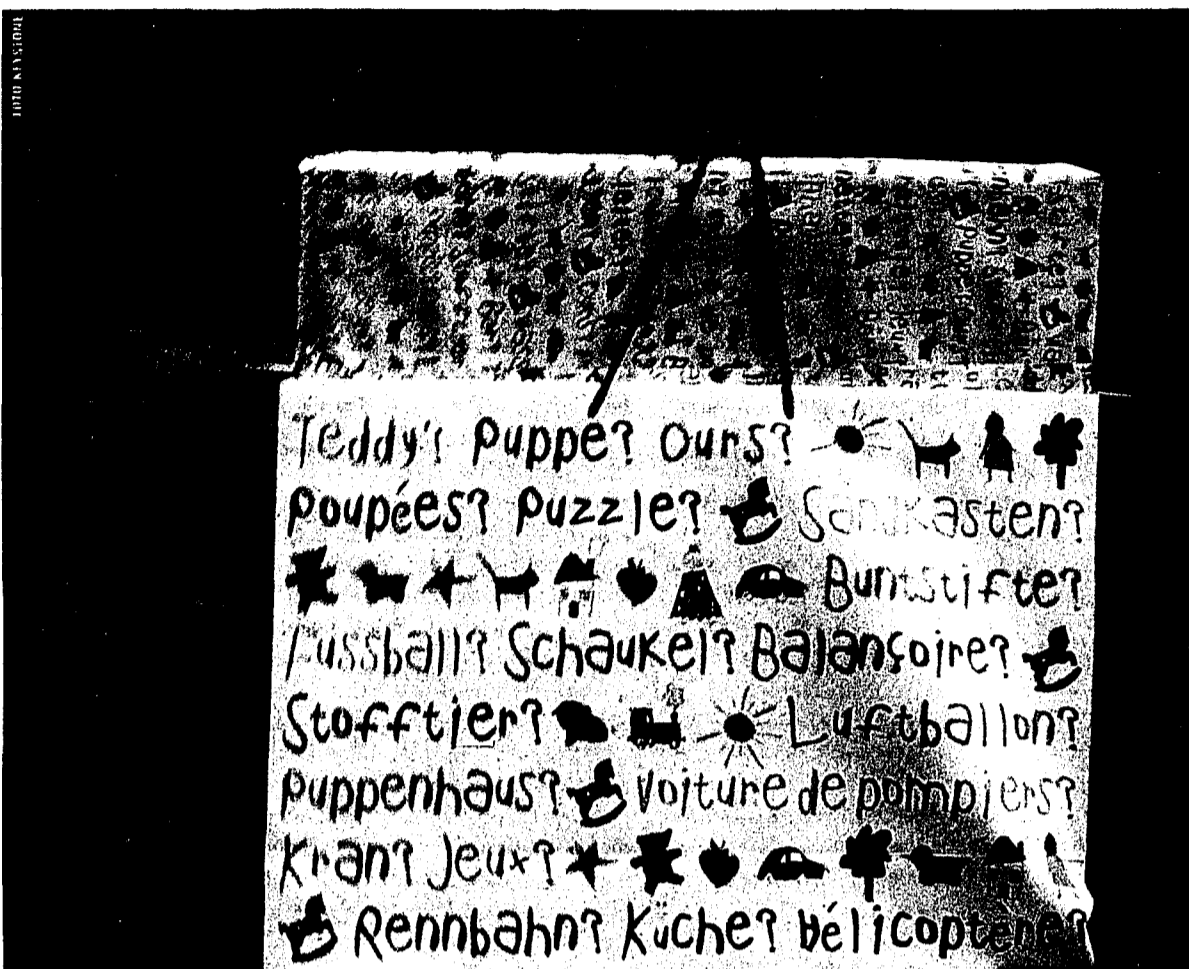 FOTO KEYSTONE
Teddy? Puppe? Ours?
Poupées? Puzzle? Sandkasten?
Buntstifte?
Fussball? Schaukel? Balançoire?
Stofftier? Luftballon?
Puppenhaus? Voiture de pompiers?
Kran? Jeux?
Rennbahn? Küche? hélicoptère?